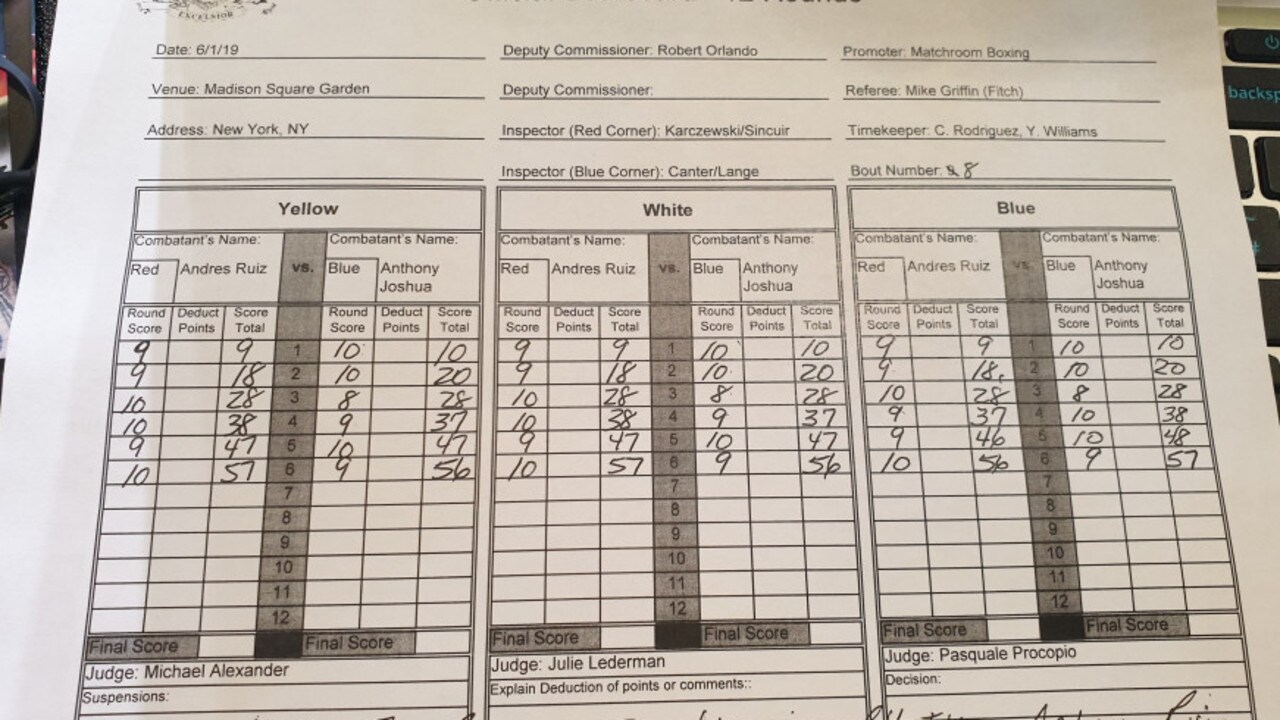 EXCELSIOR
Date: 6/1/19 Deputy Commissioner: Robert Orlando Promoter: Matchroom Boxing
Venue: Madison Square Garden Deputy Commissioner: Referee: Mike Griffin (Fitch)
backsp
Address: New York, NY Inspector (Red Corner): Karczewski/Sincuir Timekeeper: C. Rodriguez, Y. Williams
Inspector (Blue Corner): Canter/Lange Bout Number: 8
Yellow White Blue
Combatant's Name: Combatant's Name: Combatant's Name: Combatant's Name: Combatant's Name: Combatant's Name:
Red Andres Ruiz vs. Blue Anthony Red Andres Ruiz vs. Blue Anthony Red Andres Ruiz vs. Blue Anthony
Joshua Joshua Joshua
Round Deduct Score Round Deduct Score Round Deduct Score Round Deduct Score Round Deduct Score Round Deduct Score
Score Points Total Score Points Total Score Points Total Score Points Total Score Points Total Score Points Total
9 9 1 10 10 9 9 1 10 10 9 9 1 10 10
9 18 2 10 20 9 18 2 10 20 9 18 2 10 20
10 28 3 8 28 10 28 3 8 28 10 28 3 8 28
10 38 4 9 37 10 38 4 9 37 9 37 4 10 38
9 47 5 10 47 9 47 5 10 47 9 46 5 10 48
10 57 6 9 56 10 57 6 9 56 10 56 6 9 57
7 7 7
8 8 8
9 9 9
10 10 10
11 11 11
12 12 12
Final Score Final Score Final Score Final Score Final Score Final Score
Judge: Michael Alexander Judge: Julie Lederman Judge: Pasquale Procopio
Suspensions: Explain Deduction of points or comments:: Decision: